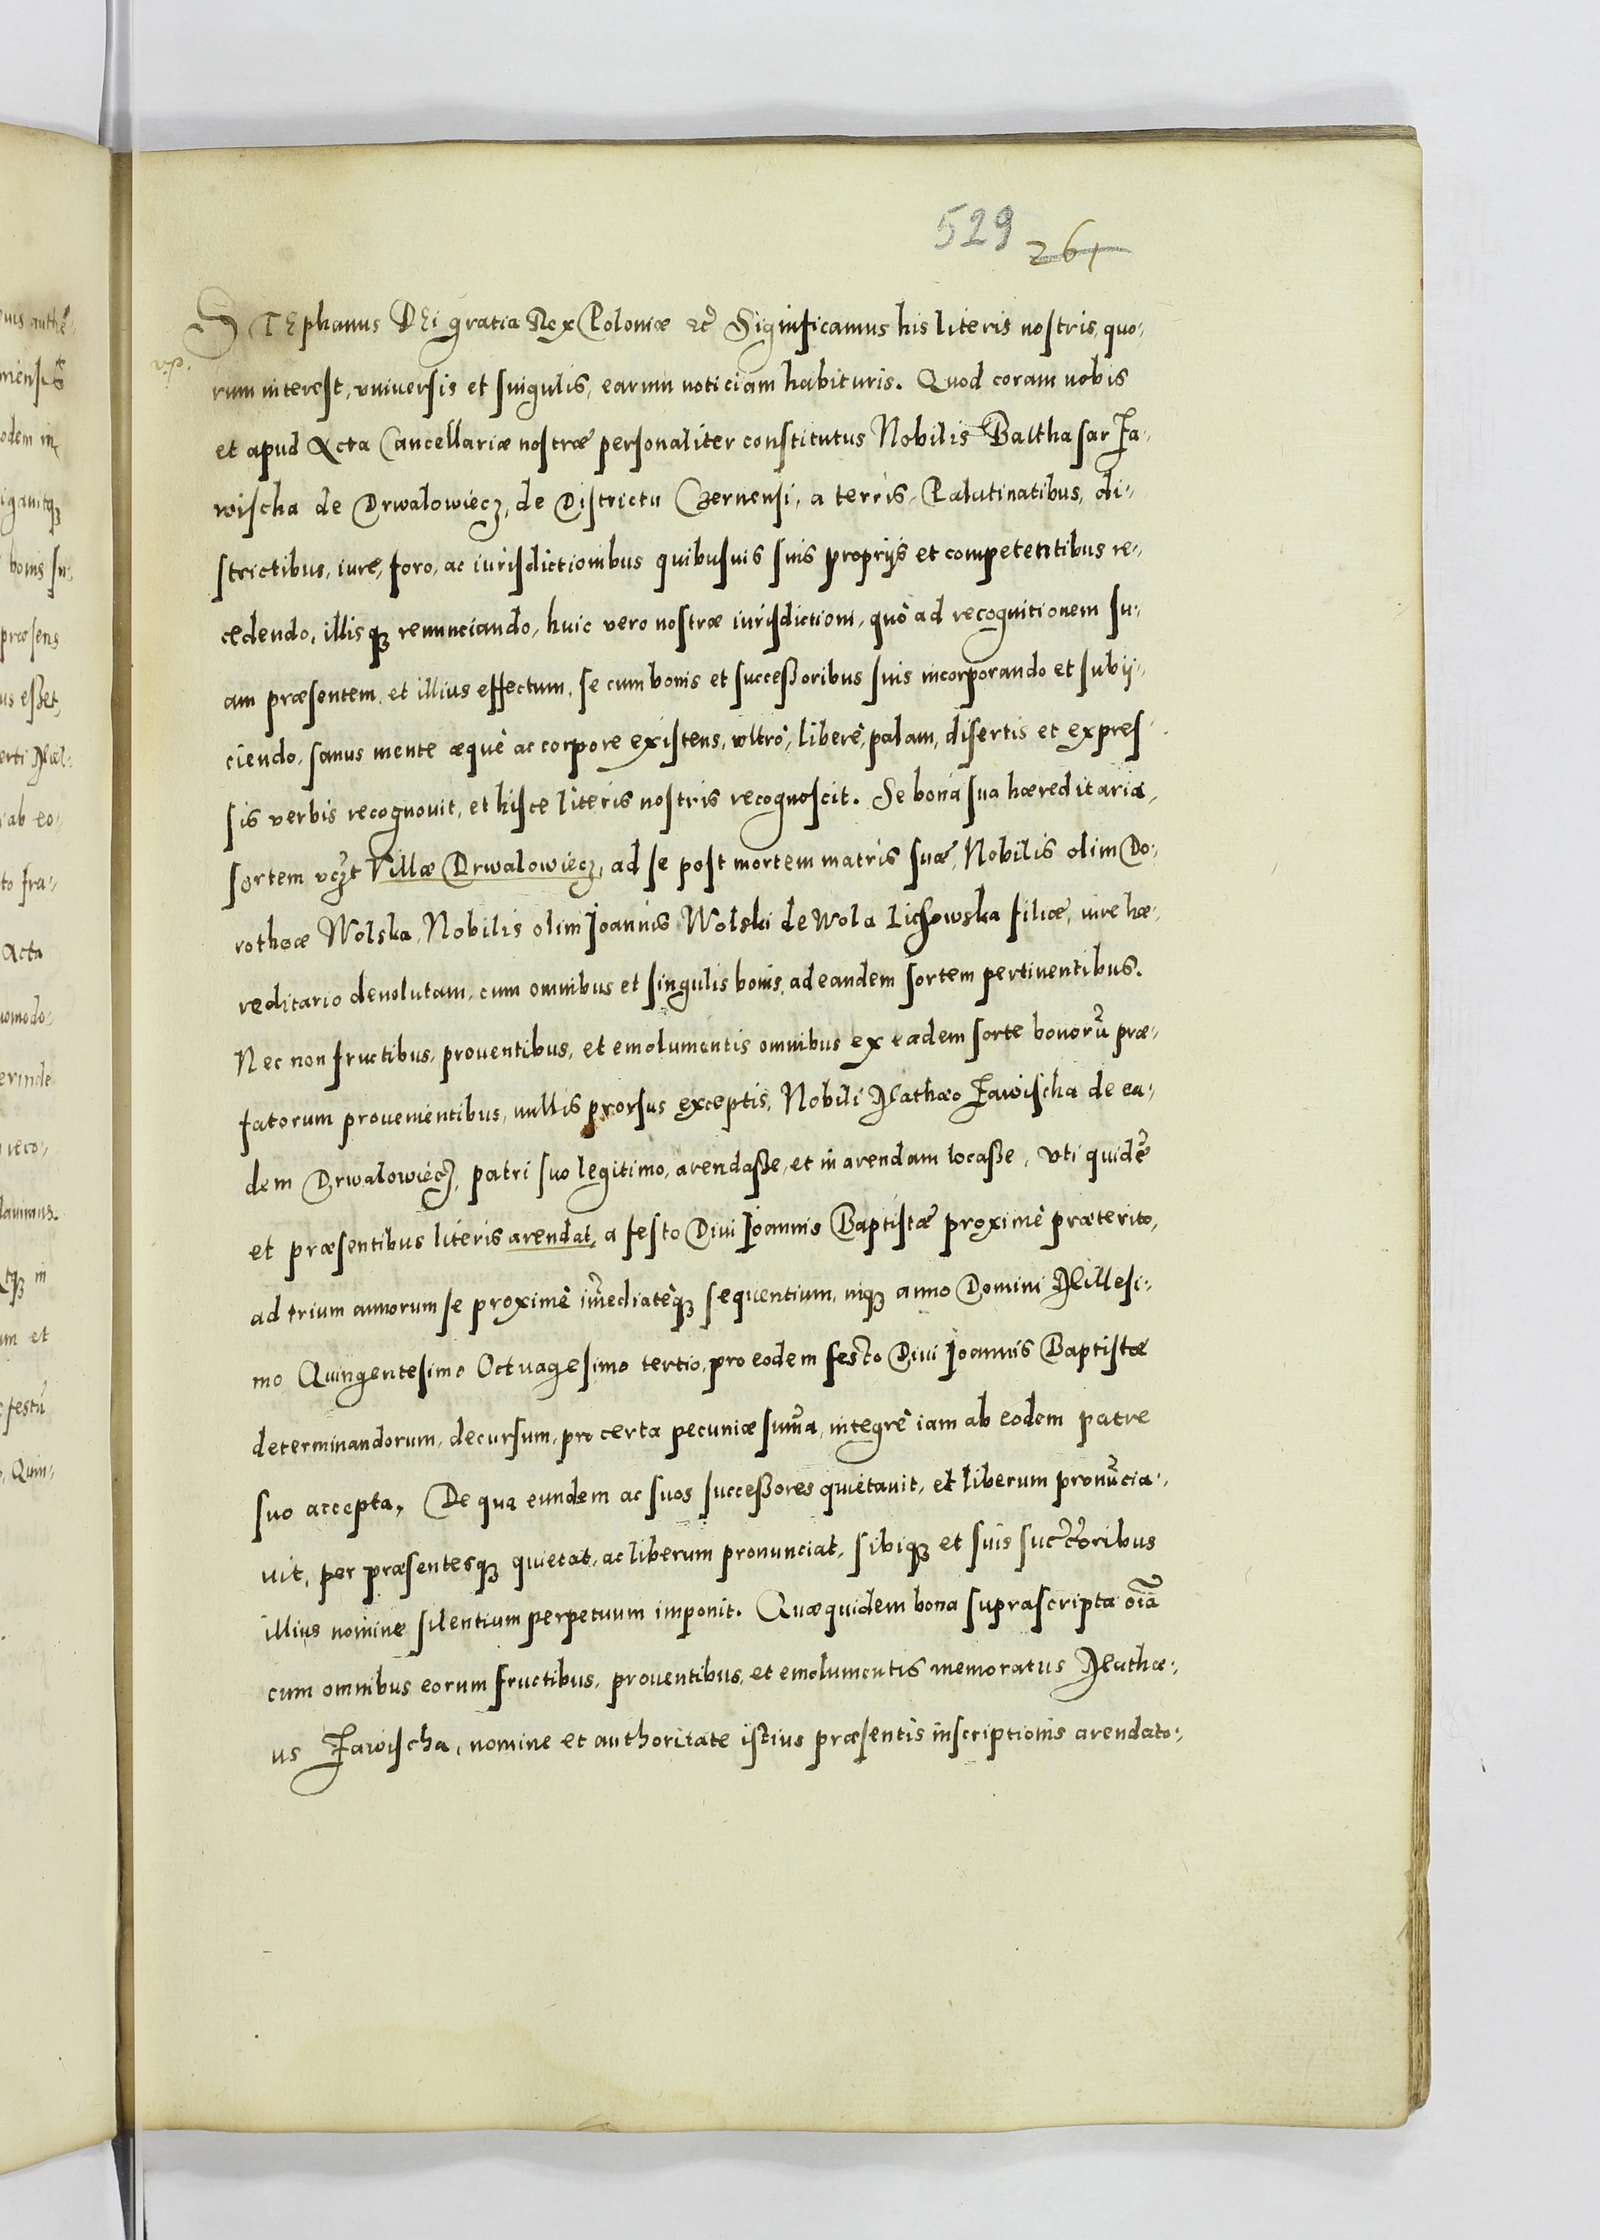 529 261
STEphanus DEi gratia Rex Poloniæ etc̃ Significamus his literis nostris, quo-
v.p.
rum interest, vniuersis et singulis, earum noticiam habituris. Quod coram nobis
et apud Acta Cancellariæ nostræ personaliter constitutus Nobilis Balthasar Ja-
wischa de Drwalowiecz, de Districtu Czernensi, a terris, Palutinatibus, di-
strictibus, iure, foro, ac iurisdictionibus quibusuis suis proprijs et competentibus re-
cedendo, illisqȝ renunciando, huic vero nostræ iurisdictioni, quò ad recognitionem su-
am præsentem, et illius effectum, se cum bonis et succeßoribus suis incorporando et subij-
ciendo, sanus mente æquè ac corpore existens, vltrò, liberè, palam, disertis et expres-
sis verbis recognouit, et hisce literis nostris recognoscit. Se bona sua hæreditaria,
sortem vczt Villæ Drwalowiecz, ad se post mortem matris suæ, Nobilis olim Do-
rotheæ Wolska, Nobilis olim Joannis Wolski de Wola Lichowska filiæ, iure hæ-
reditario deuolutam, cum omnibus et singulis bonis, ad eandem sortem pertinentibus.
Nec non fructibus, prouentibus, et emolumentis omnibus ex eadem sorte bonorũ præ-
fatorum prouenientibus, nullis prorsus exceptis, Nobili Mathæo Jawischa de ea-
dem Drwalowiecz, patri suo legitimo, arendaße, et in arendam locaße, vti quidẽ
et præsentibus literis arendat, a festo Diui Joannis Baptistæ proximè præterito,
ad trium annorum se proximè im̃ediatèqȝ sequentium, inqȝ anno Domini Millesi-
mo Quingentesimo Octuagesimo tertio, pro eodem festo Diui Joannis Baptistæ
determinandorum, decursum, pro certa pecuniæ sum̃a, integrè iam ab eodem patre
suo accepta, De qua eundem ac suos succeßores quietauit, et liberum pronũcia-
uit, per præsentesqȝ quietat, ac liberum pronunciat, sibiqȝ et suis succ̃oribus
illius nomine silentium perpetuum imponit. Quæ quidem bona suprascripta oĩa
cum omnibus eorum fructibus, prouentibus, et emolumentis memoratus Mathæ-
us Jawischa, nomine et authoritate istius præsentis inscriptionis arendato-